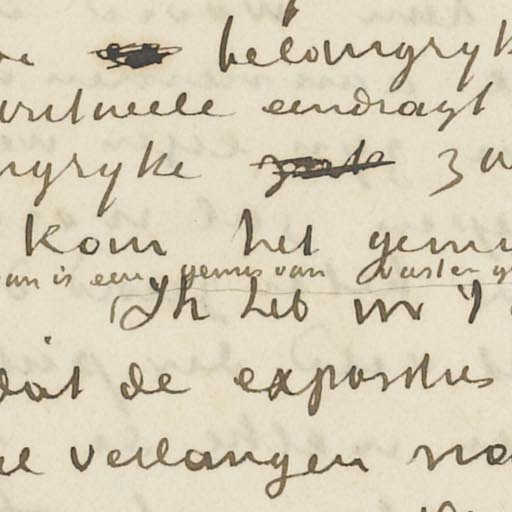 belangryk
eendragt
ngryke zu
kom het gemi
an is een gemis van vasten
Ik heb nr 1
dat de exposities
verlangen na